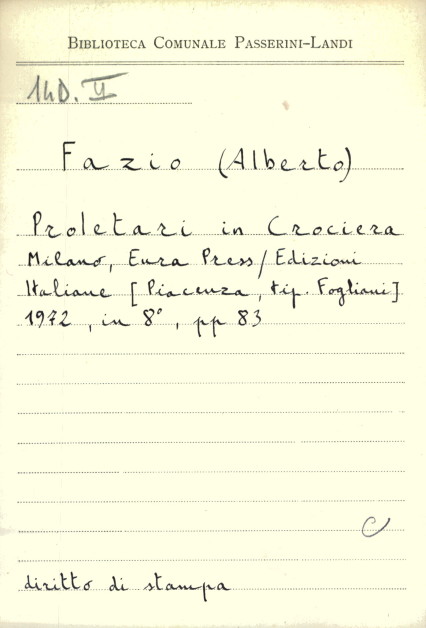 BIBLIOTECA COMUNALE PASSERINI-LANDI
140. II
Fazio (Alberto)
Proletari in Crociera
Milano, Eura Press/Edizioni
Italiane [Piacenza, tip. Fogliani]
1972, in 8°, pp 83
C
diritto di stampa